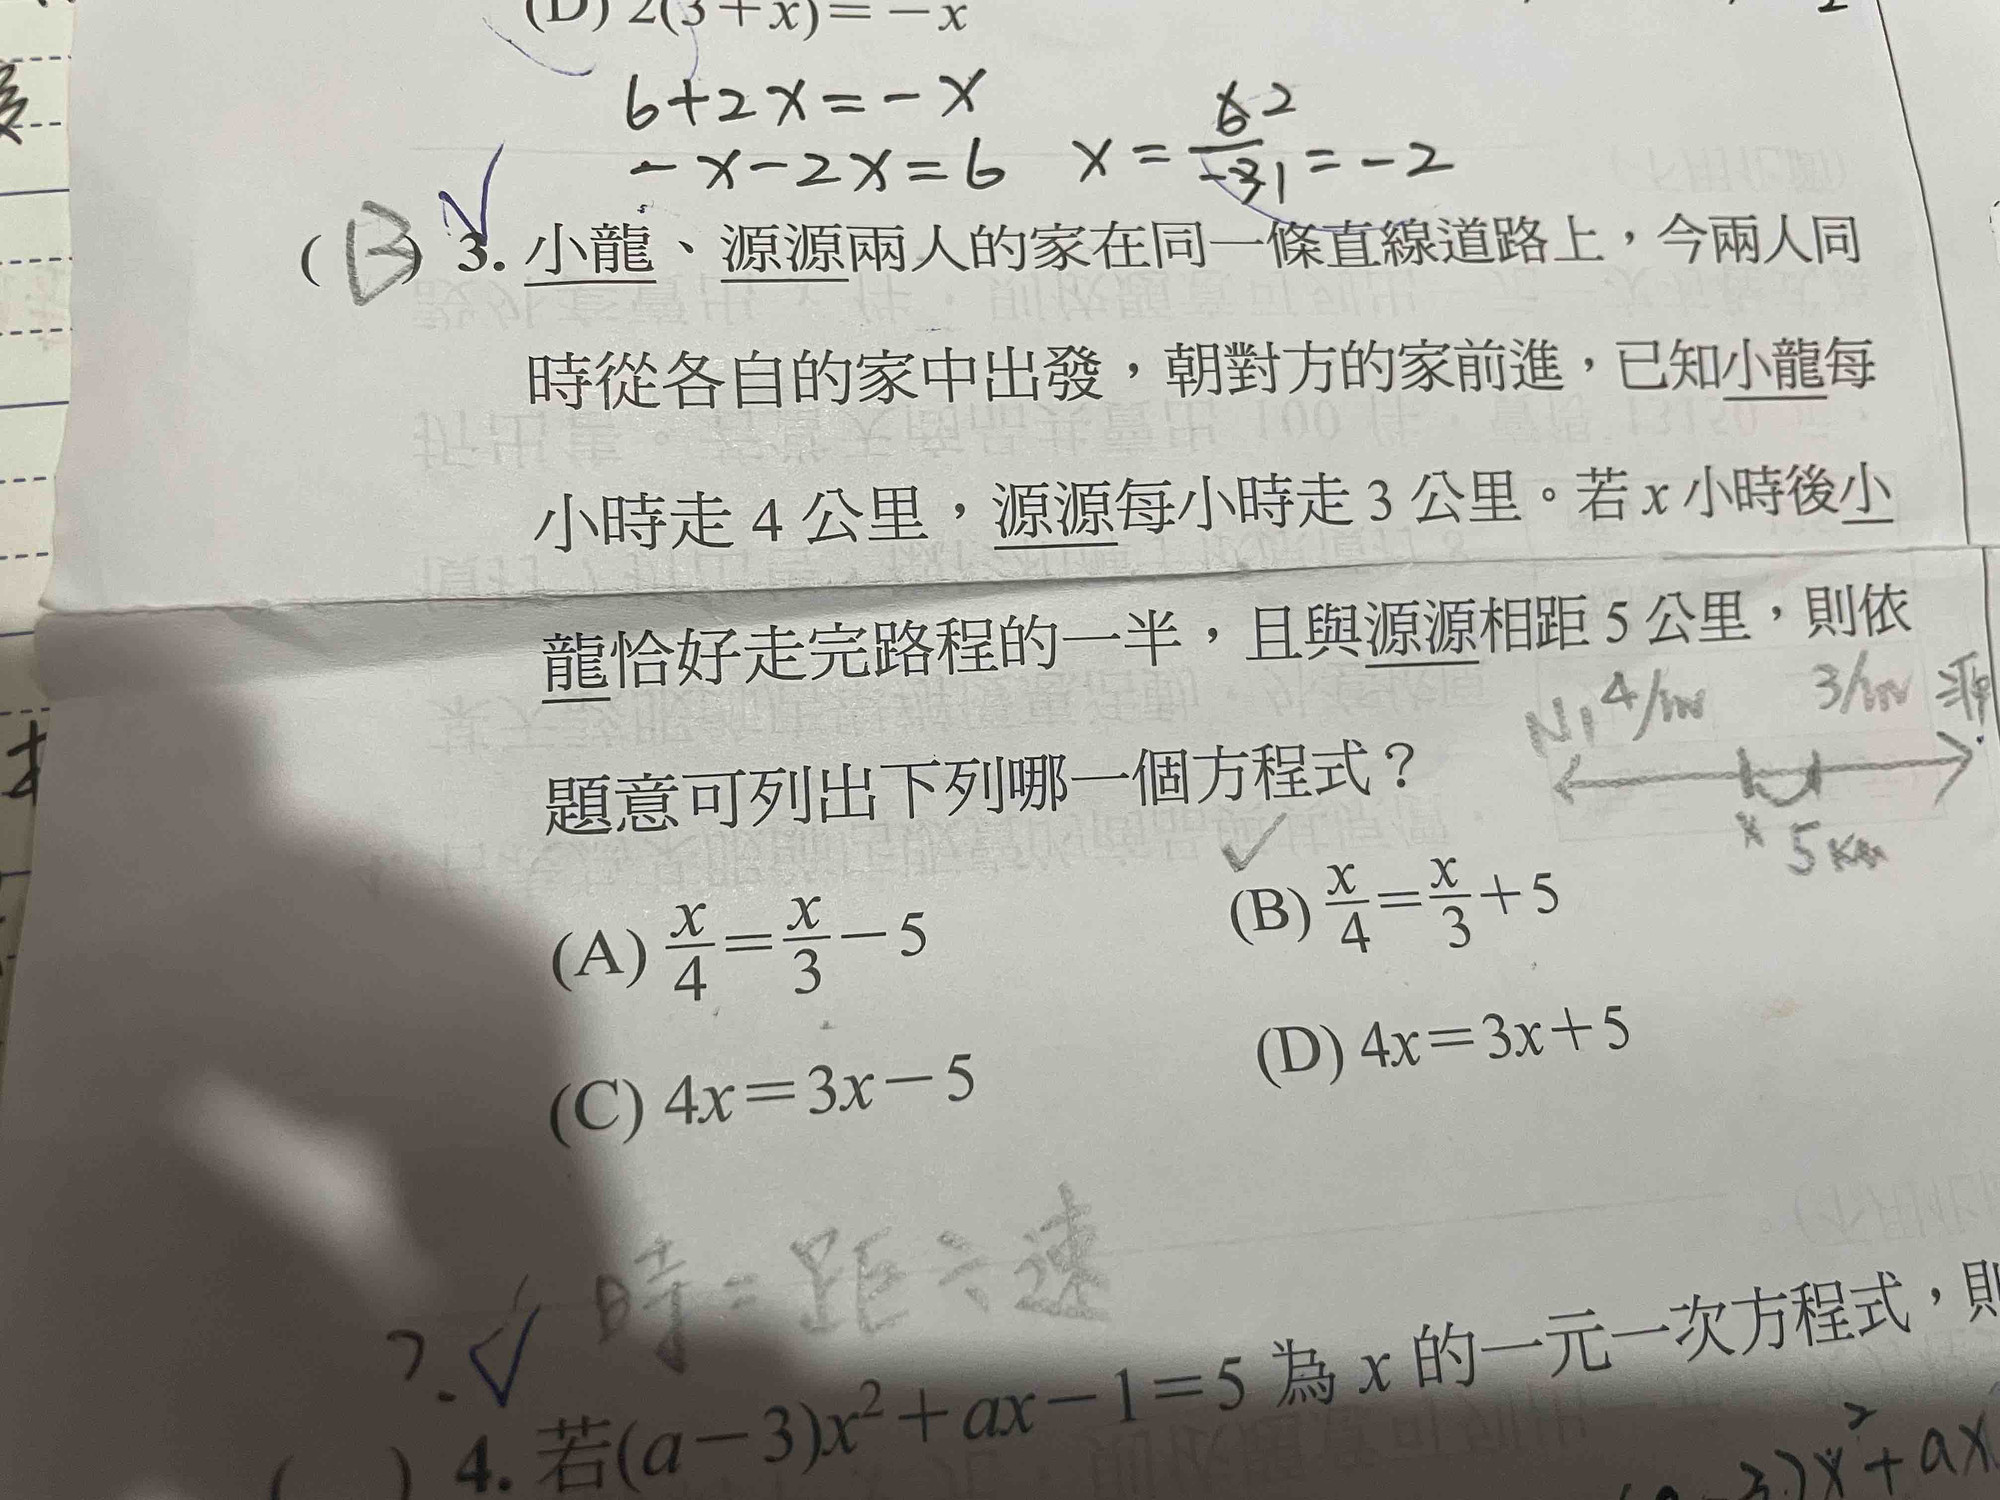 (D) 2(3+x)=-x
6+2x=-x
-x-2x=6 x=6 2/-3 1=-2
(B) 3. 小龍、源源兩人的家在同一條直線道路上，今兩人同
時從各自的家中出發，朝對方的家前進，已知小龍每
小時走 4 公里，源源每小時走 3 公里。若 x 小時後小
龍恰好走完路程的一半，且與源源相距 5 公里，則依
題意可列出下列哪一個方程式？
4/hr 3/hr
x 5km
(A) x/4=x/3-5 (B) x/4=x/3+5
(C) 4x=3x-5 (D) 4x=3x+5
時=距÷速
?.
( ) 4. 若(a-3)x²+ax-1=5 為 x 的一元一次方程式，則
3)x²+ax